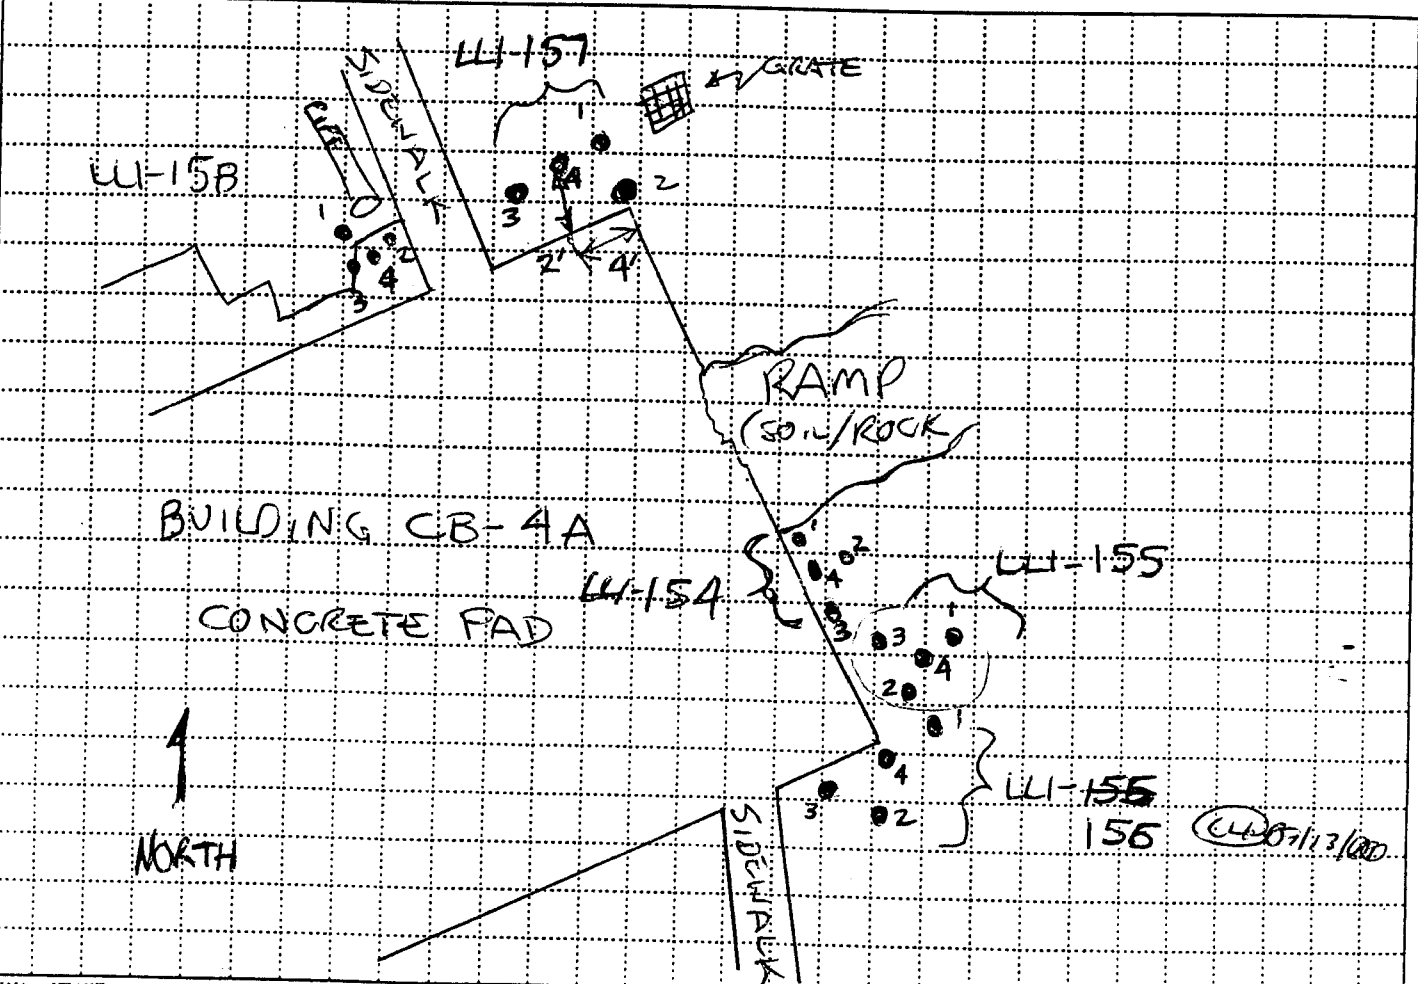 LLI-157
GRATE
SIDEWALK
LLI-158
1
2
4
3
1
4
2
3
2'
4'
RAMP
(SOIL/ROCK
BUILDING CB-4A
CONCRETE PAD
LLI-154
1
2
4
3
LLI-155
1
3
4
2
1
4
3
2
LLI-155
156
NORTH
SIDEWALK